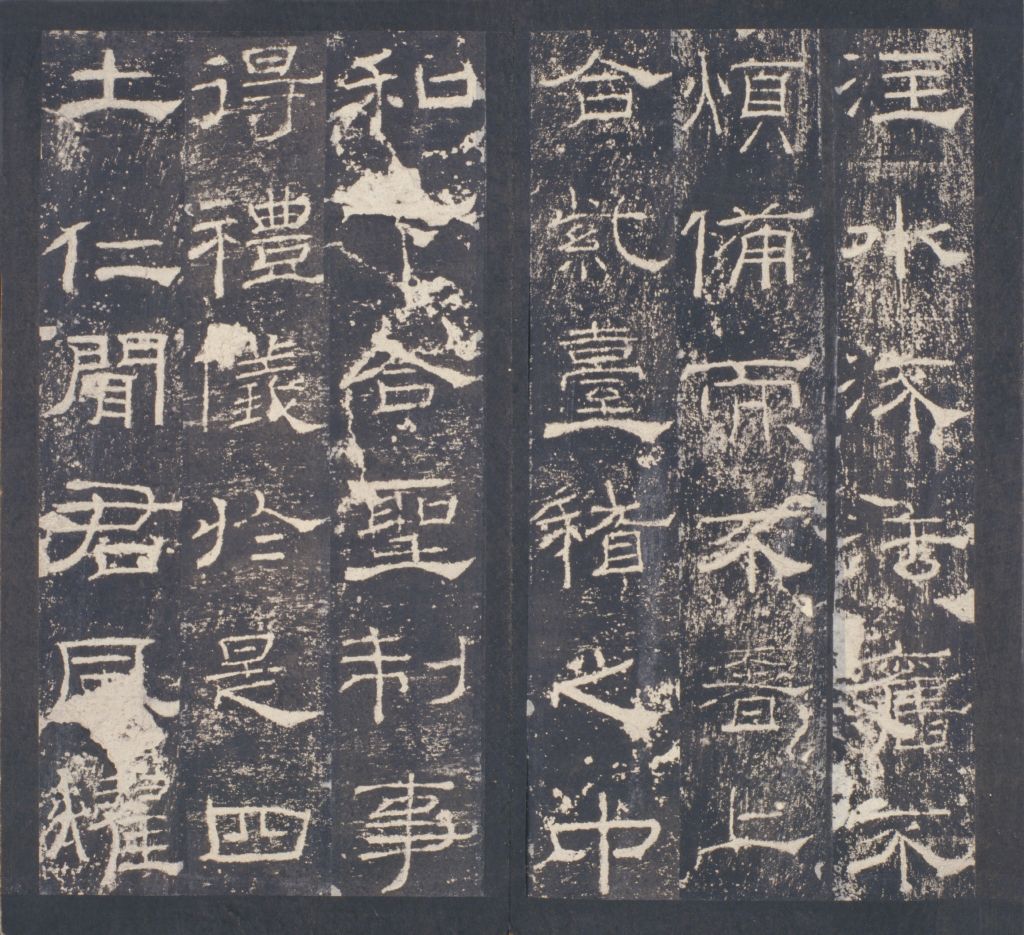 注水流法舊不
煩備而不奢上
合紫臺稽之中
和下合聖制事
得禮儀於是四
士仁聞君風耀